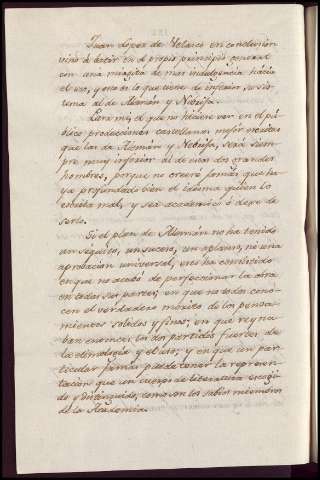 Juan Lopez de Velasco en conclusion
vino á decir en el propio principio general
con una miagita de mas indulgencia hácia
el uso, y esto es lo que tiene de inferior su sis-
tema al de Aleman y Nebrija.
Para mi, el que no hiciere ver en el pú-
blico producciones castellanas mejor escritas
que las de Alemán y Nebrija, será siem-
pre muy inferior al de esos dos grandes
hombres, porque no creeré jamás que ha-
ya profundado bien el idioma quien lo
escriba mal, y sea académico ó dexe de
serlo.
Si el plan de Alemán no ha tenido
un séquito, un suceso, un aplauso, ni una
aprobacion universal, eso ha consistido
en que no acabó de perfeccionar la obra
en todas sus partes; en que no todos cono-
cen el verdadero mérito de los pensa-
mientos solidos y finos; en que reyna-
ban entonces los dos partidos fuertes de
la etimología y el uso; y en que un par-
ticular jamás puede tener la represen-
tacion que un cuerpo de literatura escogi-
do y distinguido, como son los sabios miembros
de la Academia.